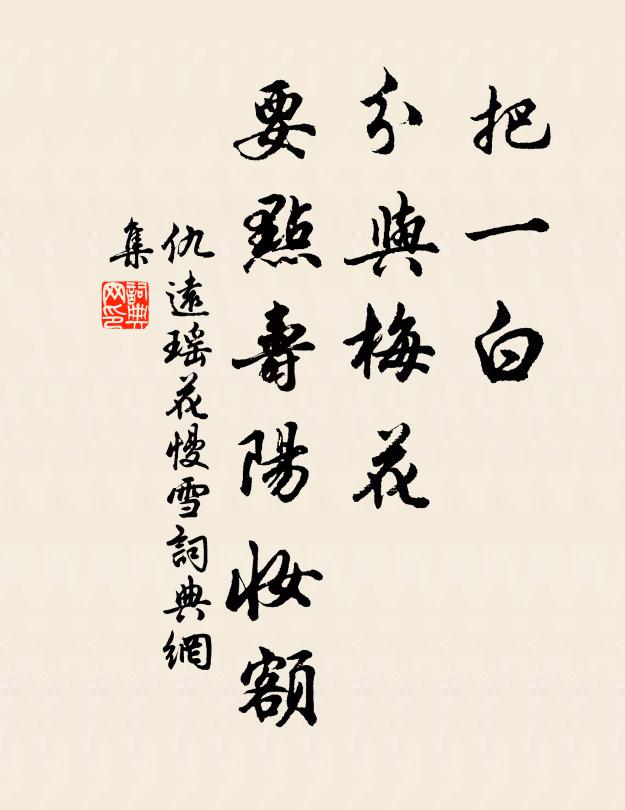 把一白
分與梅花
要點壽陽妝額
仇遠瑶花慢雪詞典網
集
詞典网印